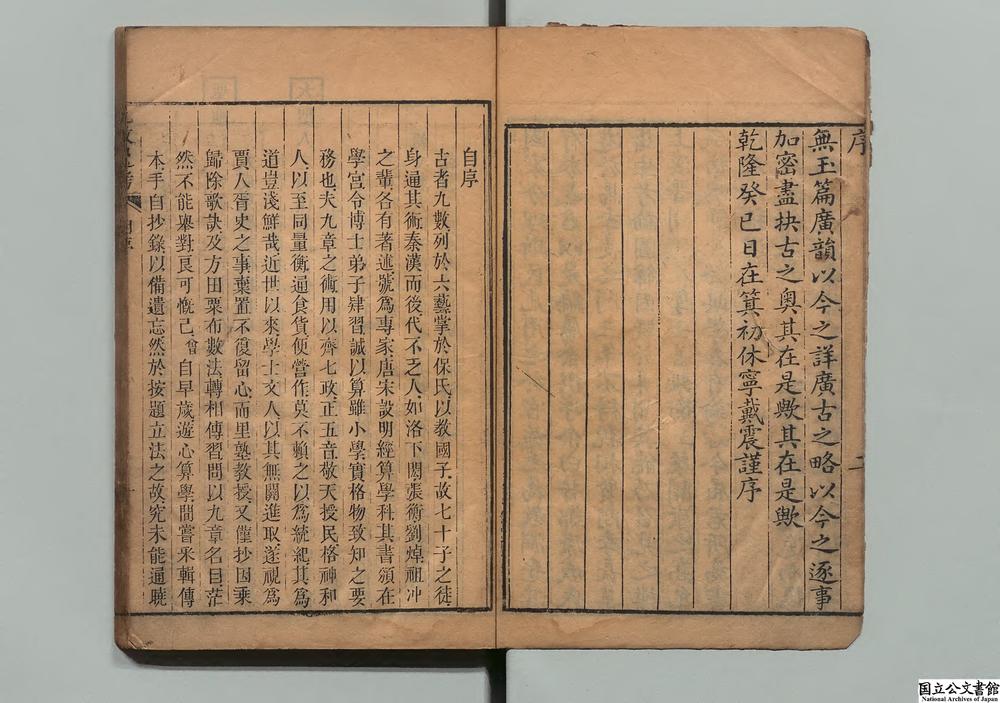 序
無玉篇廣韻以今之詳廣古之略以今之逐事
加密盡抉古之奧其在是歟其在是歟
乾隆癸巳日在箕初休寧戴震謹序
二
自序
古者九數列於六藝掌於保氏以教國子故七十子之徒
身通其術秦漢而後代不乏人如洛下閎張衡劉焯祖冲
之輩各有著述號為專家唐宋設明經算學科其書頒在
學宮令博士弟子肄習誠以算雖小學實格物致知之要
務也夫九章之術用以齊七政正五音敬天授民格神和
人以至同量衡通食貨便營作莫不賴之以為統紀其為
道豈淺鮮哉近世以來學士文人以其無關進取遂視為
賈人胥史之事棄置不復留心而里塾教授又僅抄因乘
歸除歌訣及方田粟布數法轉相傳習問以九章名目茫
然不能舉對良可慨已曾自早歲遊心算學間嘗采輯傳
本手自抄錄以備遺忘然於按題立法之故究未能通曉
国立公文書館
National Archives of Japan